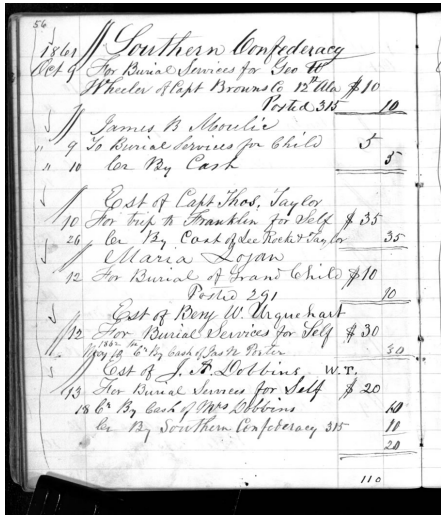 56
1861 // Southern Confederacy
Oct 9 For Burial Services for Geo W
Wheeler of Capt Browns Co 12th Ala $10
Posted 315 10
// James B Moulie
" 9 To Burial Services for Child 5
" 10 Cr By Cash 5
// Est of Capt Thos. Taylor
10 For trip to Franklin for Self $35
26 Cr By Cash of Lee Rocke & Taylor 35
// Maria Logan
12 For Burial of Grand Child $10
Posted 291 10
// Est of Benj W. Urquehart
12 For Burial Services for Self $30
1862
Cr By Cash of Jas N Porter 30
// Est of J. A. Dobbins W.T.
13 For Burial Services for Self $20
18 Cr By Cash of Mrs Dobbins 10
Cr By Southern Confederacy 315 10
20
110